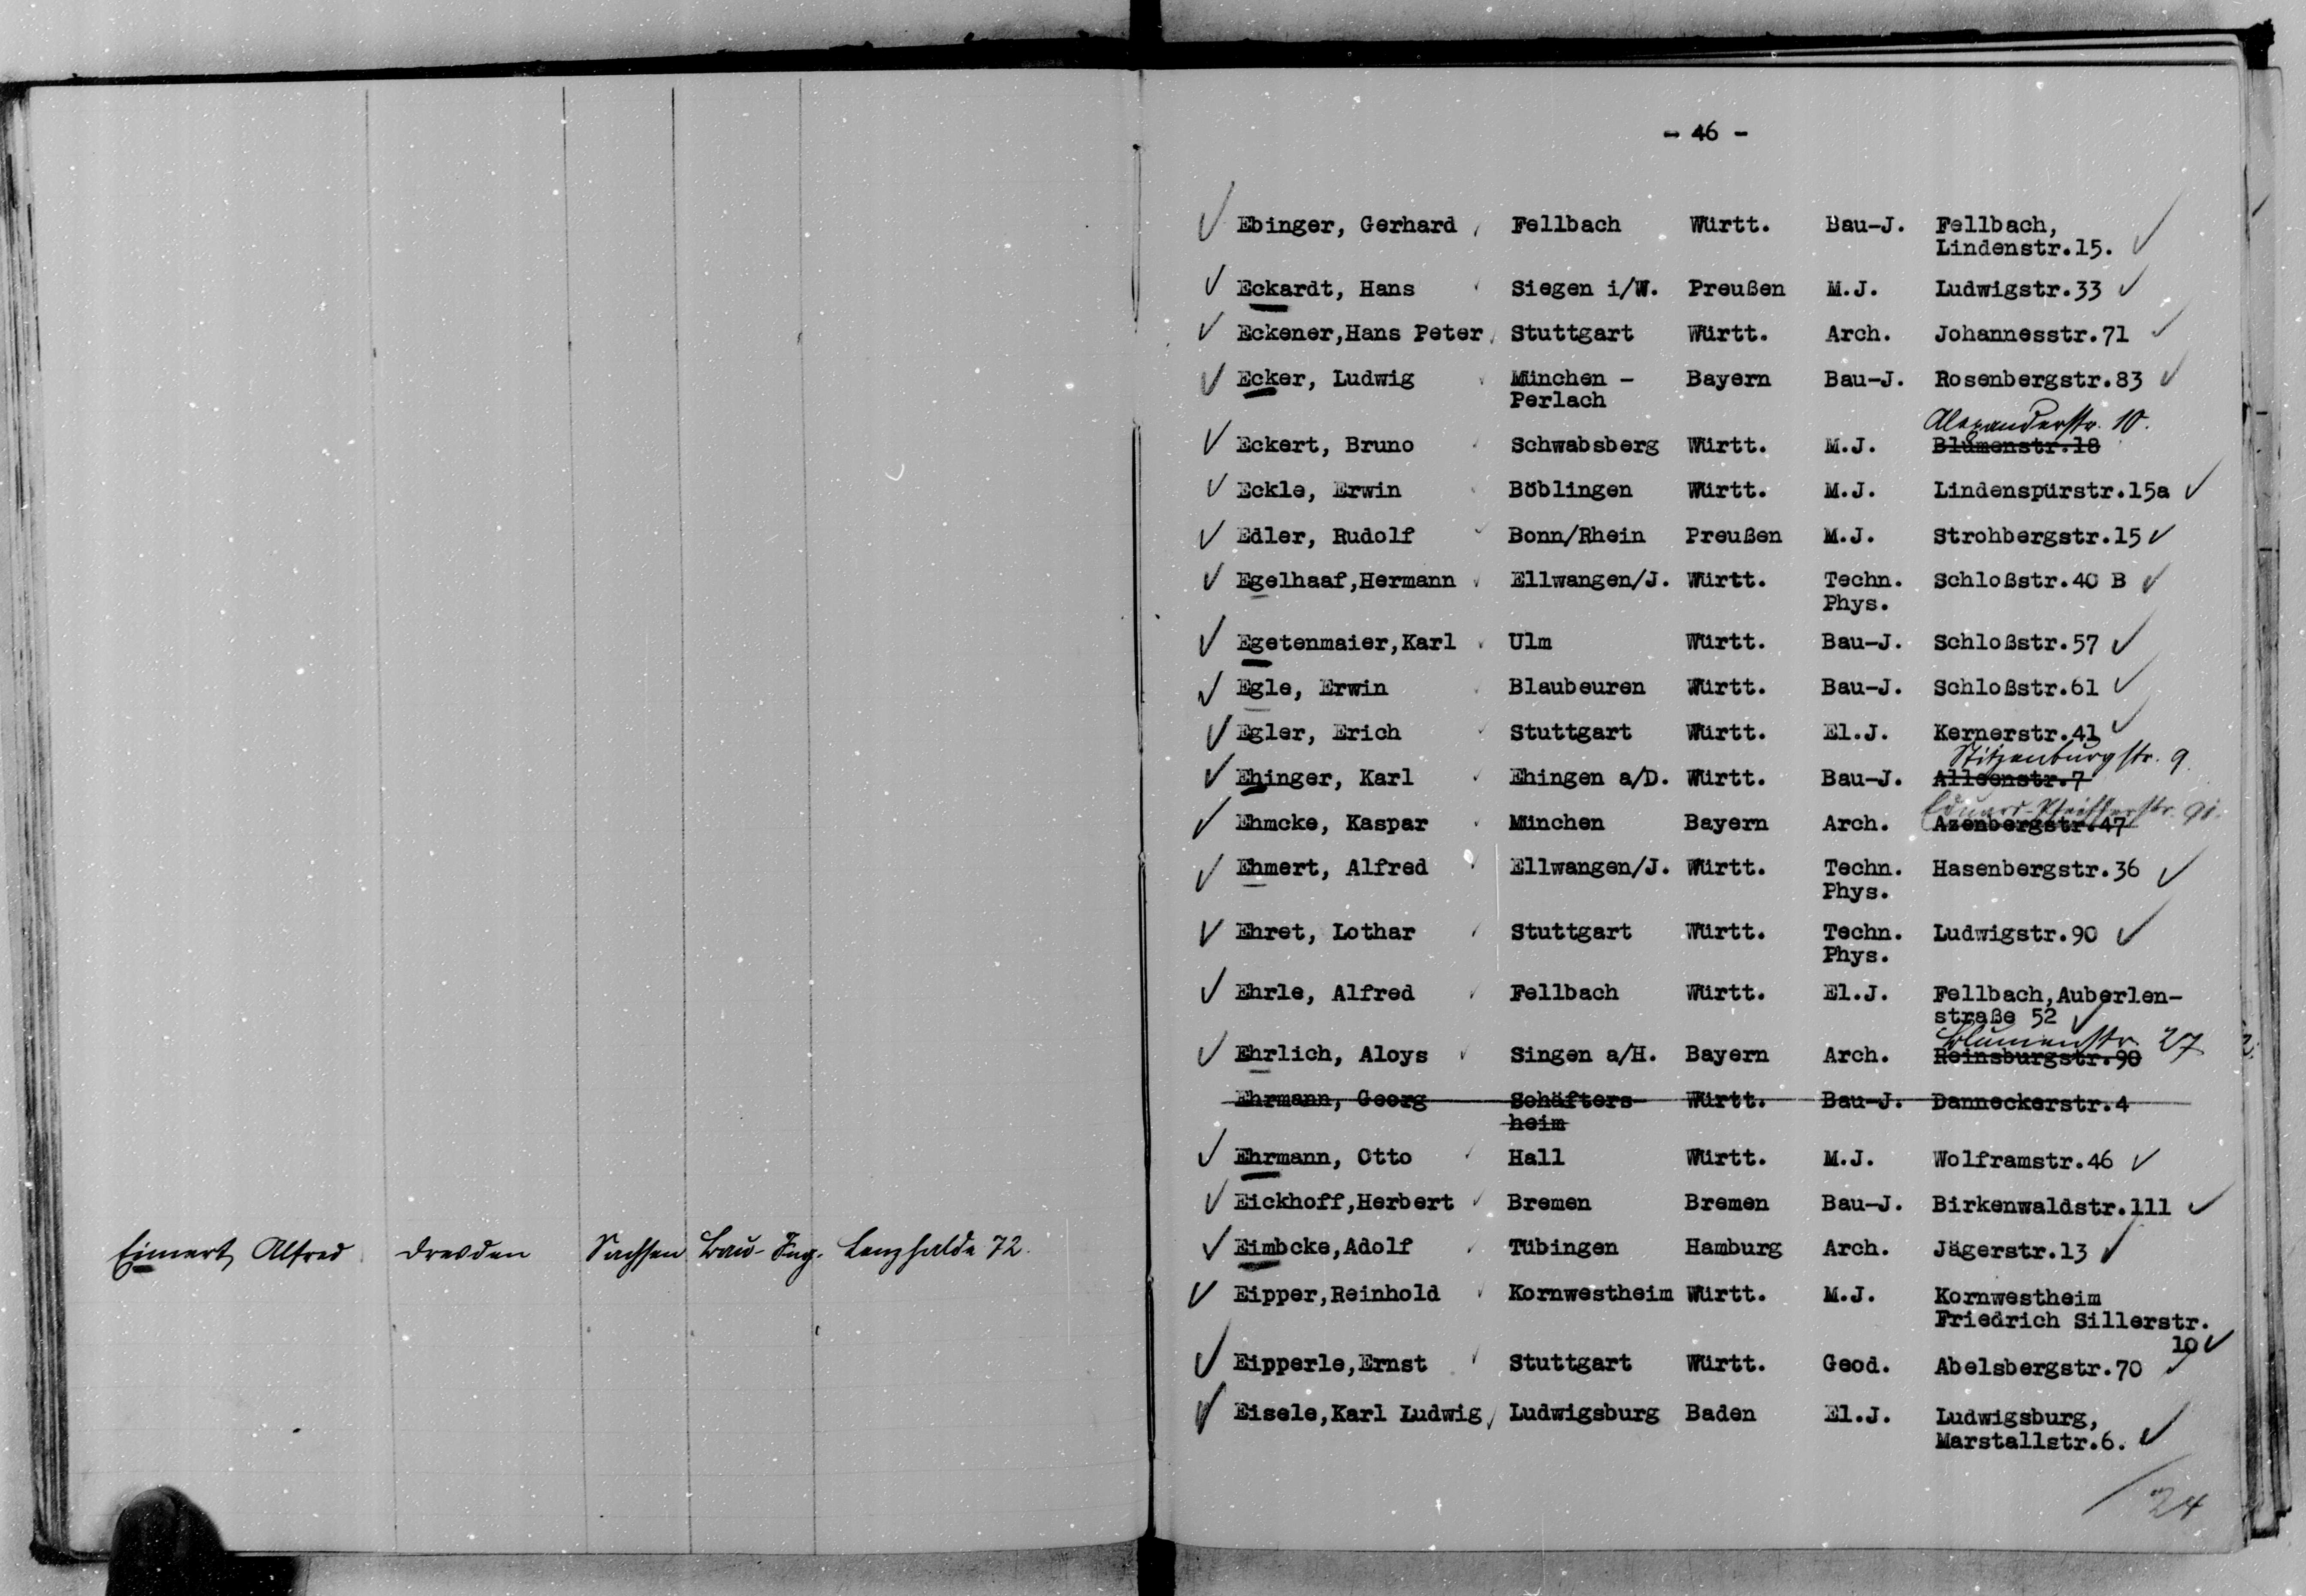 Eimert Alfred Dresden Sachsen Bau-Ing. Lenzhalde 72.
- 46 -
Ebinger, Gerhard Fellbach Württ. Bau-J. Fellbach,
Lindenstr.15.
Eckardt, Hans Siegen i/W. Preußen M.J. Ludwigstr.33
Eckener,Hans Peter Stuttgart Württ. Arch. Johannesstr.71
Ecker, Ludwig München - Bayern Bau-J. Rosenbergstr.83
Perlach
Alexanderstr. 10.
Eckert, Bruno Schwabsberg Württ. M.J. Blumenstr.18
Eckle, Erwin Böblingen Württ. M.J. Lindenspürstr.15a
Edler, Rudolf Bonn/Rhein Preußen M.J. Strohbergstr.15
Egelhaaf,Hermann Ellwangen/J. Württ. Techn. Schloßstr.40 B
Phys.
Egetenmaier,Karl Ulm Württ. Bau-J. Schloßstr.57
Egle, Erwin Blaubeuren Württ. Bau-J. Schloßstr.61
Egler, Erich Stuttgart Württ. El.J. Kernerstr.41
Stitzenburgstr. 9
Ehinger, Karl Ehingen a/D. Württ. Bau-J. Alleenstr.7
Eduard-Pfeifferstr.
Ehmcke, Kaspar München Bayern Arch. Azenbergstr.47
Ehmert, Alfred Ellwangen/J. Württ. Techn. Hasenbergstr.36
Phys.
Ehret, Lothar Stuttgart Württ. Techn. Ludwigstr.90
Phys.
Ehrle, Alfred Fellbach Württ. El.J. Fellbach,Auberlen-
straße 52
Blumenstr. 27
Ehrlich, Aloys Singen a/H. Bayern Arch. Reinsburgstr.90
Ehrmann, Georg Schäfters- Württ. Bau-J. Danneckerstr.4
heim
Ehrmann, Otto Hall Württ. M.J. Wolframstr.46
Eickhoff,Herbert Bremen Bremen Bau-J. Birkenwaldstr.111
Eimbcke,Adolf Tübingen Hamburg Arch. Jägerstr.13
Eipper,Reinhold Kornwestheim Württ. M.J. Kornwestheim
Friedrich Sillerstr.
10
Eipperle,Ernst Stuttgart Württ. Geod. Abelsbergstr.70
Eisele,Karl Ludwig Ludwigsburg Baden El.J. Ludwigsburg,
Marstallstr.6.
24